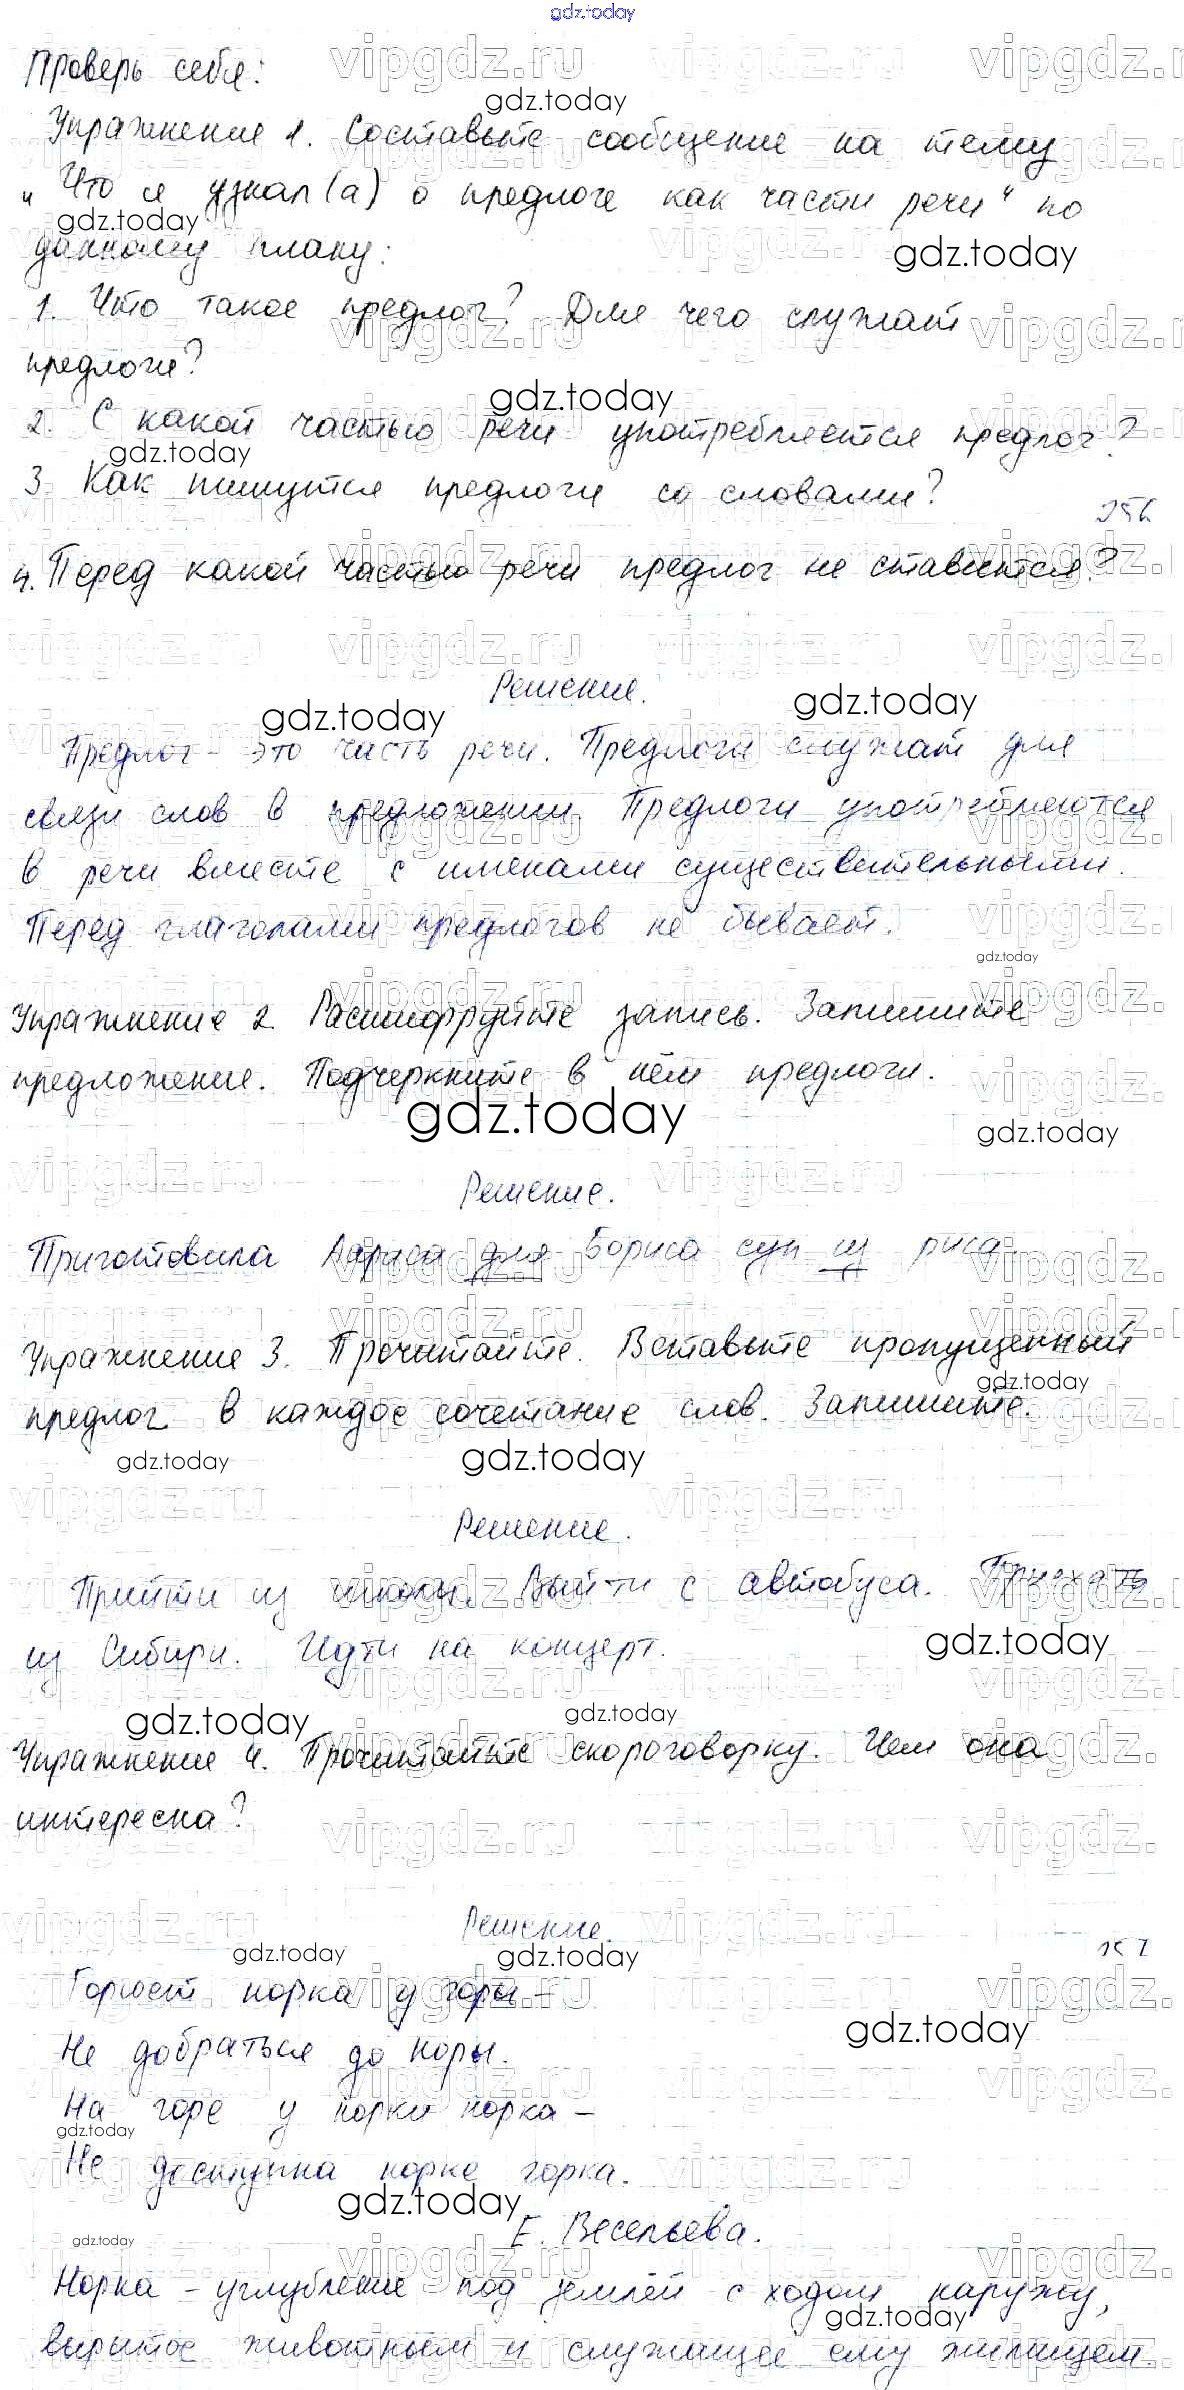 gdz.today
Проверь себя:
Упражнение 1. Составьте сообщение на тему
„Что я узнал(а) о предлоге как части речи" по
данному плану:
1. Что такое предлог? Для чего служат
предлоги?
2. С какой частью речи употребляется предлог?
3. Как пишутся предлоги со словами?
156
4. Перед какой частью речи предлог не ставится?
Решение.
Предлог - это часть речи. Предлоги служат для
связи слов в предложении. Предлоги употребляются
в речи вместе с именами существительными.
Перед глаголами предлогов не бывает.
Упражнение 2. Расшифруйте запись. Запишите
предложение. Подчеркните в нём предлоги.
Решение.
Приготовила Лариса для Бориса суп из риса.
Упражнение 3. Прочитайте. Вставьте пропущенный
предлог в каждое сочетание слов. Запишите.
Решение.
Прийти из школы. Выйти с автобуса. Приехать
из Сибири. Идти на концерт.
Упражнение 4. Прочитайте скороговорку. Чем она
интересна?
Решение.
157
Горюет норка у горы –
Не добраться до норы.
На горе у норки норка –
Не доступна норке горка.
Е. Весельева.
Норка – углубление под землёй с ходом наружу,
вырытое животным и служащее ему жилищем.